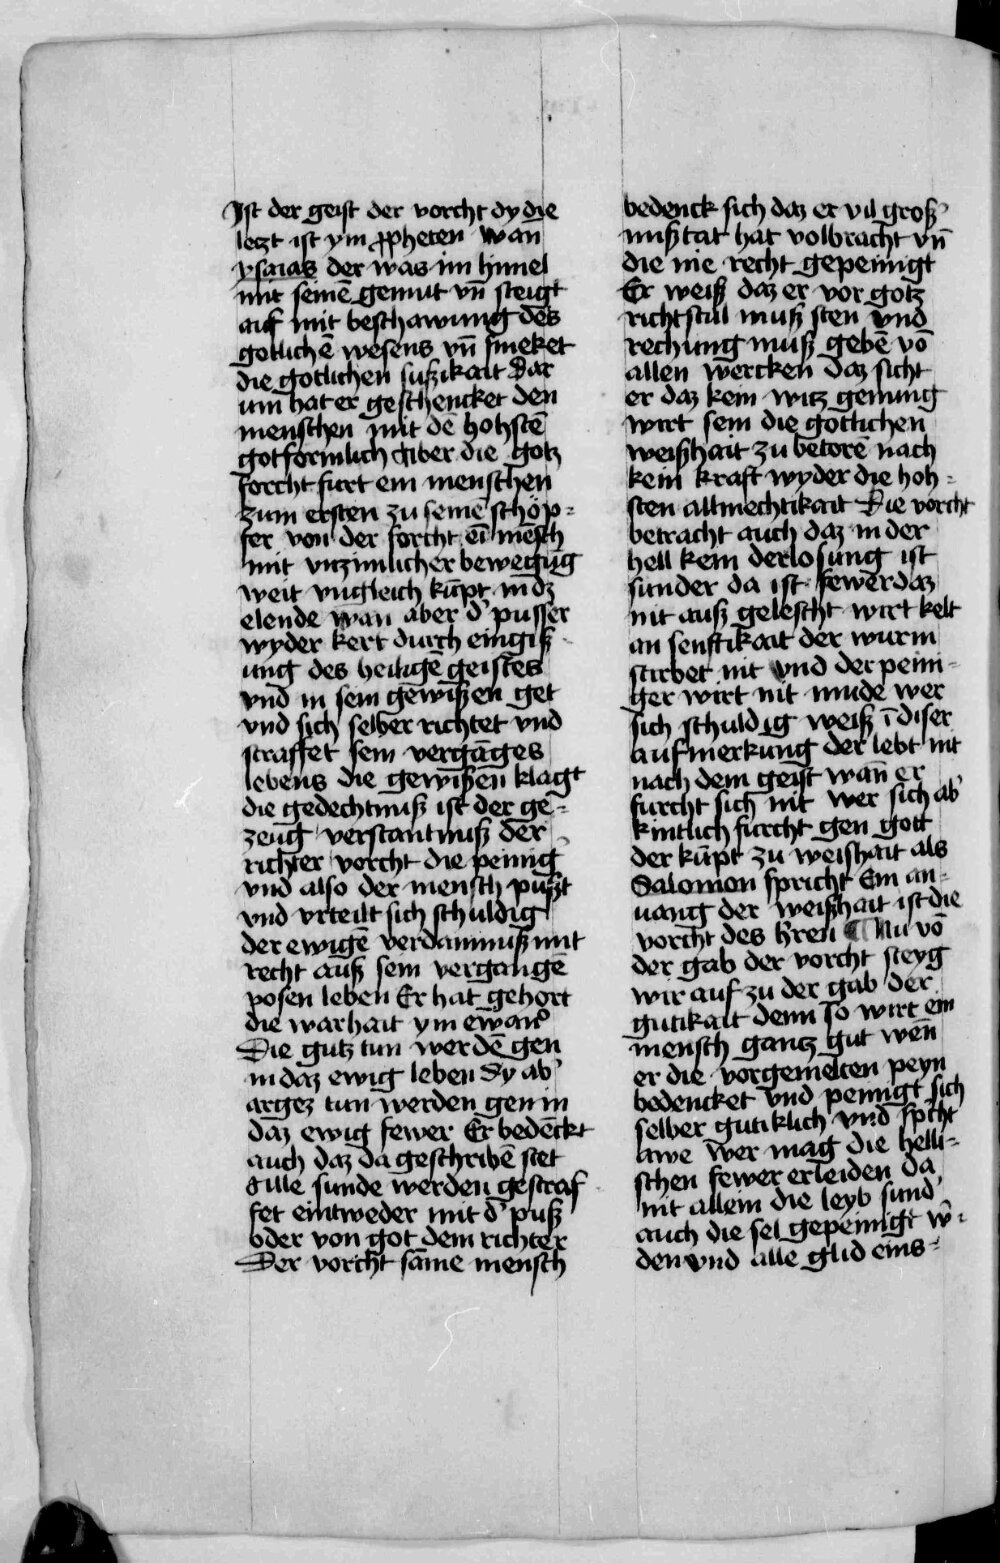 Ist der geist der vorcht dy die
letzt ist ym ppheten wan̄
ysaias der was im himel
mit seinē gemut vn̄ steigt
auf mit beschawung des
gotlichē wesens vn̄ smeket
die gotlichen sußikait Dar
um hat er geschencket den
menschen mit dē hohstē
gotformlich Aber die gotz
forcht furt ein menschen
zum ersten zu seinē schöp=
fer von der forcht eī mēsch
mit vnzimlicher bewegūg
weit vngleich kūpt in dz
elende wan aber d' pusser
wyder kert durch eingiß
ung des heiligē geistes
vnd in sein gewißen get
vnd sich selber richtet vnd
straffet sein vergāges
lebens die gewißen klagt
die gedechtnuß ist der ge=
zeug verstantnuß der
richter vorcht die peinig'
vnd also der mensch pußt
vnd vrteilt sich schuldig
der ewigē verdamnuß mit
recht auß sein vergangē
posen leben Er hat gehort
die warhait ym ewan°
Die gutz tun werdē gen
in daz ewig leben Dy ab'
argez tun werden gen in
daz ewig fewer Er bedēckt
auch daz da geschribē stet
Alle sunde werden gestraf
fet eintweder mit d' puß
oder von got dem richter
Der vorcht sāme mensch
bedenck sich daz er vil groß'
mißtat hat volbracht vn̄
die nie recht gepeinigt
Er weiß daz er vor gotz
richtstul muß sten vnd
rechnung muß gebē vō
allen wercken daz sicht
er daz kein witz genung
wirt sein die gotlichen
weißhait zu betorē nach
kein kraft wyder die hoh=
sten allmechtikait Die vorcht
betracht auch daz in der
hell kein derlosung ist
sunder da ist fewer daz
nit auß gelescht wirt kelt
an senftikait der wurm
stirbet nit vnd der peini=
ger wirt nit mude wer
sich schuldig weiß ī diser
aufmerkung der lebt nit
nach dem geist wan̄ er
furcht sich nit wer sich ab'
kintlich furcht gen gott
der kūpt zu weishait als
Salomon spricht Ein an=
uang der weißhait ist die
vorcht des h̄ren ¶ Nu vō
der gab der vorcht steyg
wir auf zu der gab der
gutikait denn so wirt ein
mensch gantz gut wēn
er die vorgemelten peyn
bedencket vnd peinigt sich
selber gutiklich vnd spcht
awe wer mag die helli=
schen fewer erleiden da
nit allein die leyb sund'
auch die sel gepeinigt w̄=
den vnd alle glid eins=